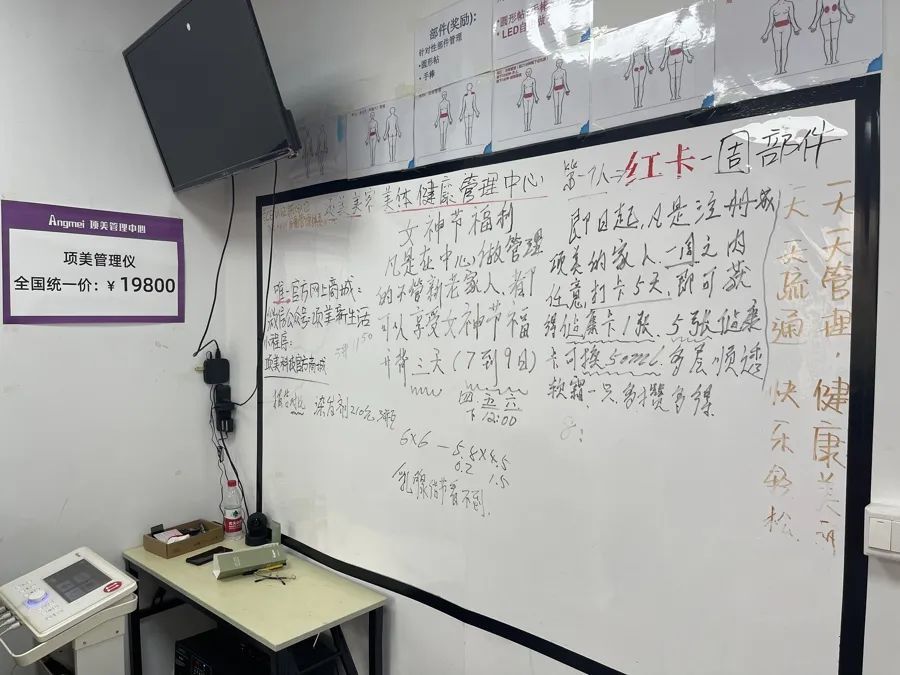 部件(奖励):
针对性部件管理
•圆形帖
•手棒
Angmei 项美管理中心
项美管理仪
全国统一价: ¥ 19800
美体健康管理中心
女神节福利
凡是在中心做管理
的不管新老家人、都
可以享受女神节福
三天(7到9日)
四 五 六
下12:00
官方网上商城:
微信公众号项美新生活
小程序:
项美科技官方商城
染发剂210元
6×6 — 5.8×4.5
0.2 1.5
乳腺结节看不到.
第一人=红卡-固部件
即日起,凡是注册成
项美的家人一周之内
任意打卡5天,即可获
得健康卡1张、5张健康
卡可换50ml多层顺透
软霜一只多攒多得
天天管理·健康美丽
天天疏通 快乐轻松